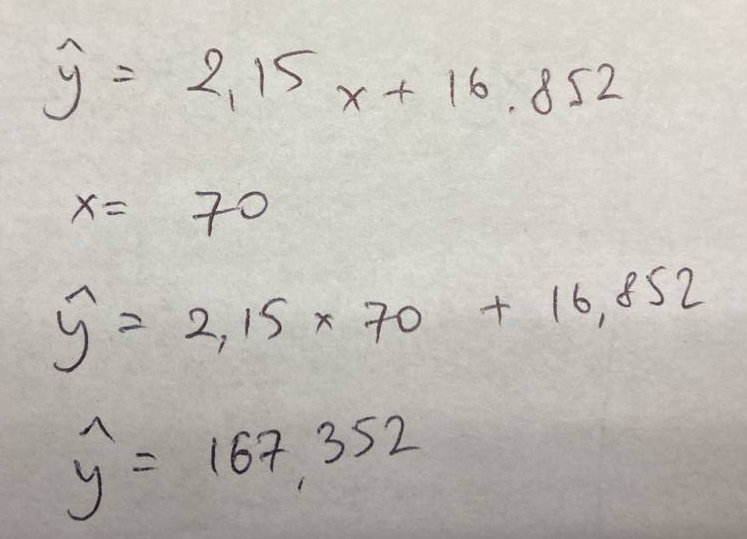 ŷ = 2,15 x + 16.852
x = 70
ŷ = 2,15 × 70 + 16,852
ŷ = 167,352